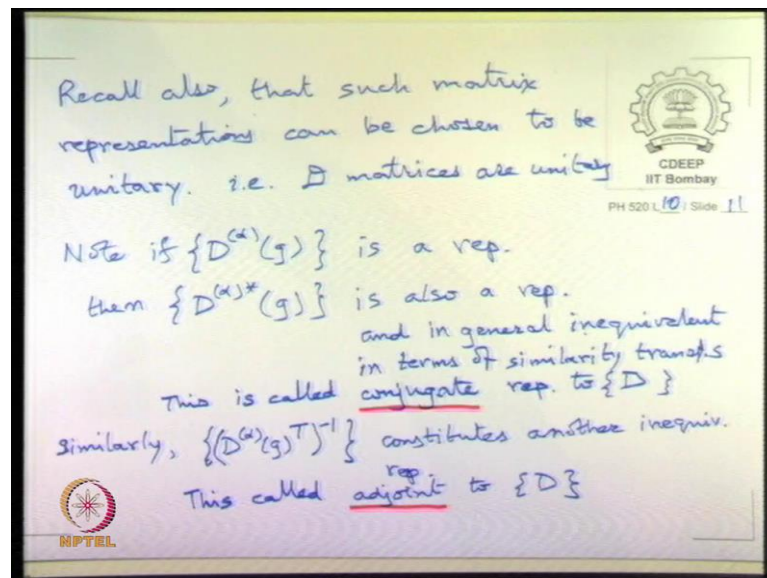 Recall also, that such matrix
representations can be chosen to be
unitary. i.e. D matrices are unitary
CDEEP
IIT Bombay
PH 520 L 10 / Slide 11
Note if {D^(α)(g)} is a rep.
then {D^(α)*(g)} is also a rep.
and in general inequivalent
in terms of similarity transf.s
This is called conjugate rep. to {D}
Similarly, {(D^(α)(g)^T)^-1} constitutes another inequiv.
rep
This called adjoint to {D}
NPTEL